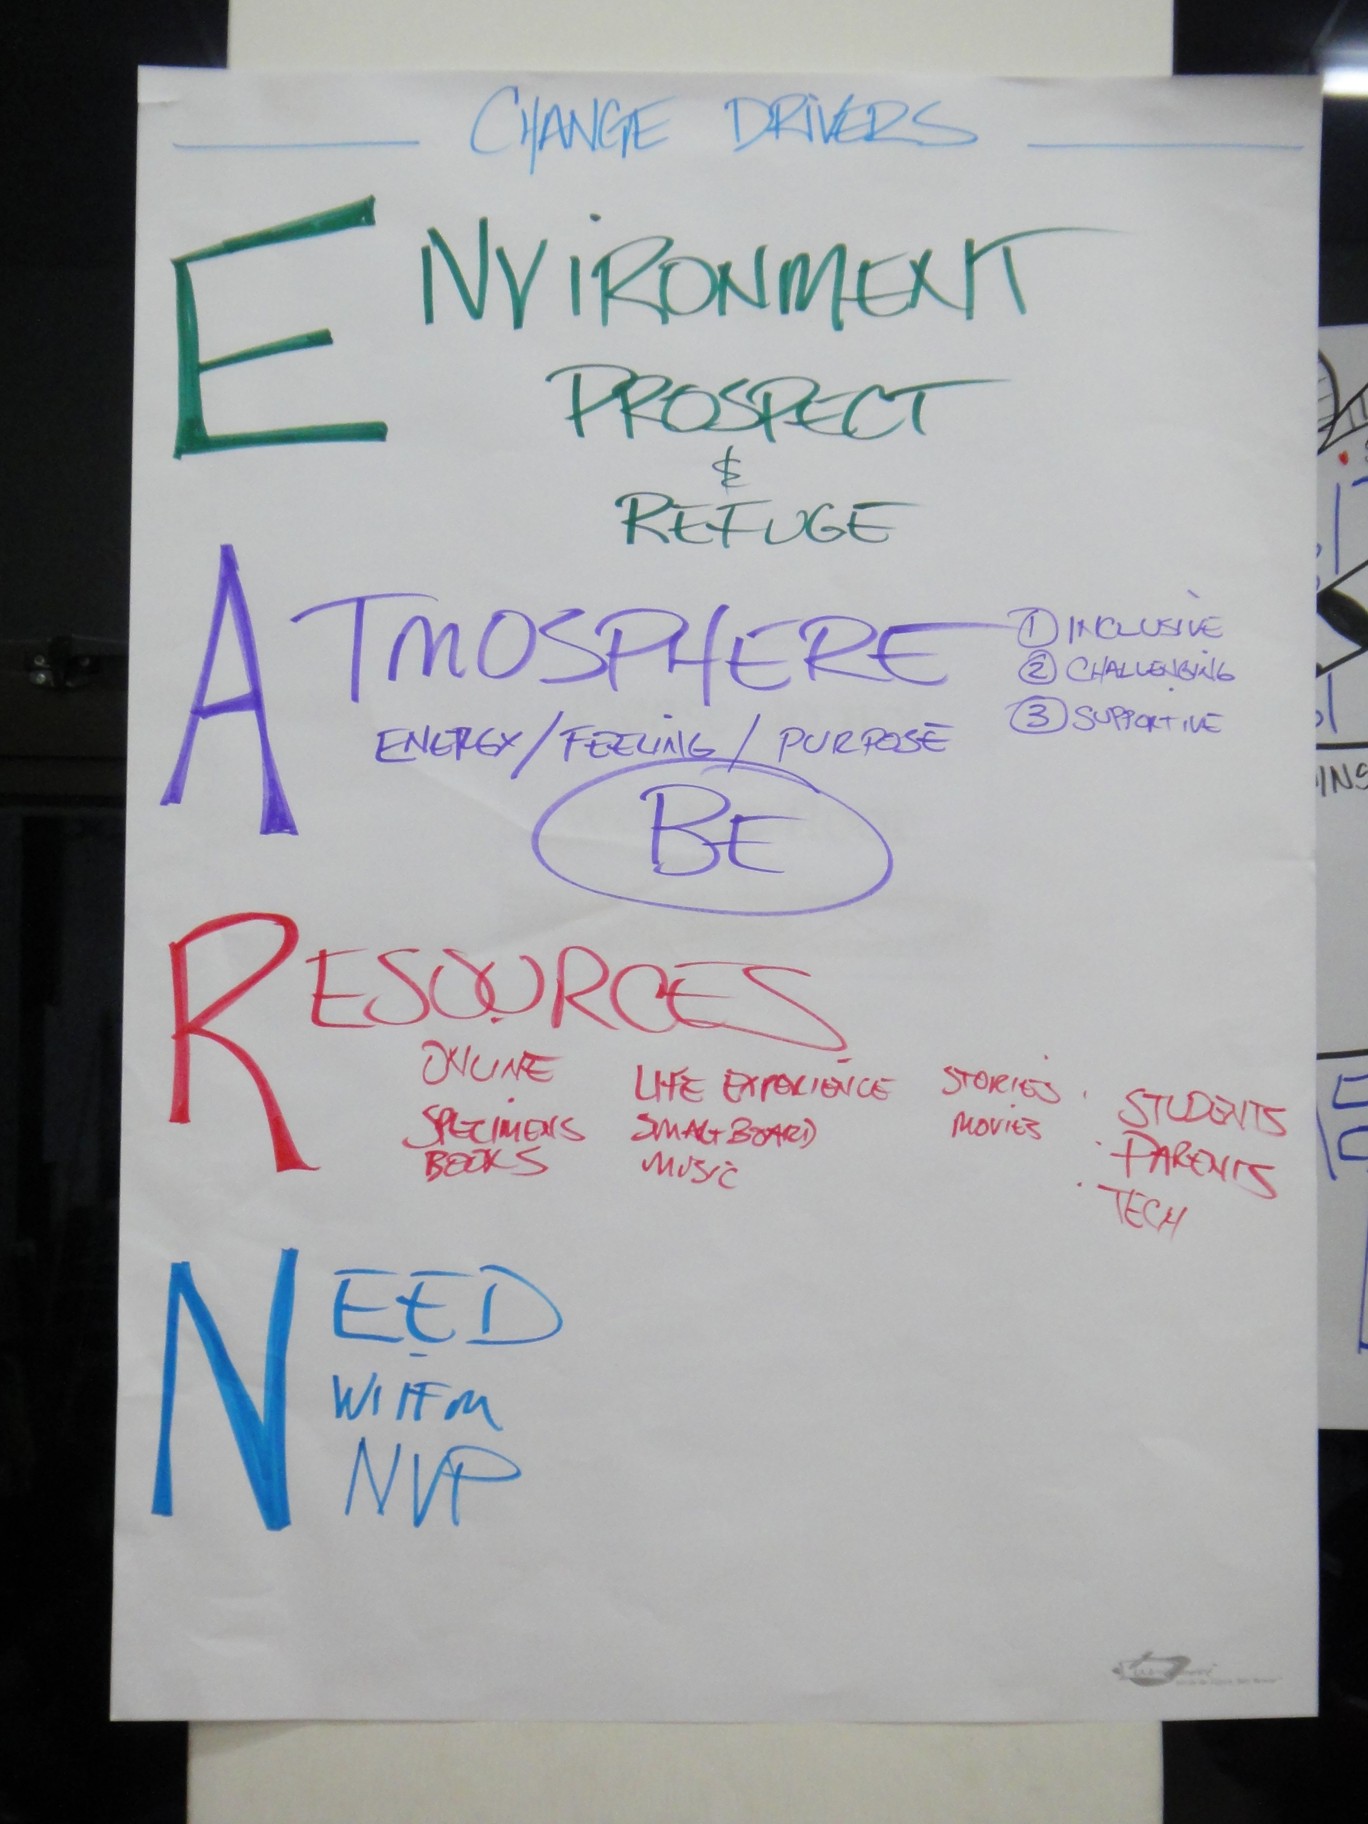 CHANGE DRIVERS
ENVIRONMENT
PROSPECT
&
REFUGE
ATMOSPHERE
① INCLUSIVE
② CHALLENGING
③ SUPPORTIVE
ENERGY/FEELING/PURPOSE
BE
RESOURCES
ONLINE
SPECIMENS
BOOKS
LIFE EXPERIENCE
SMARTBOARD
MUSIC
STORIES
MOVIES
· STUDENTS
· PARENTS
· TECH
NEED
WIIFM
NVP